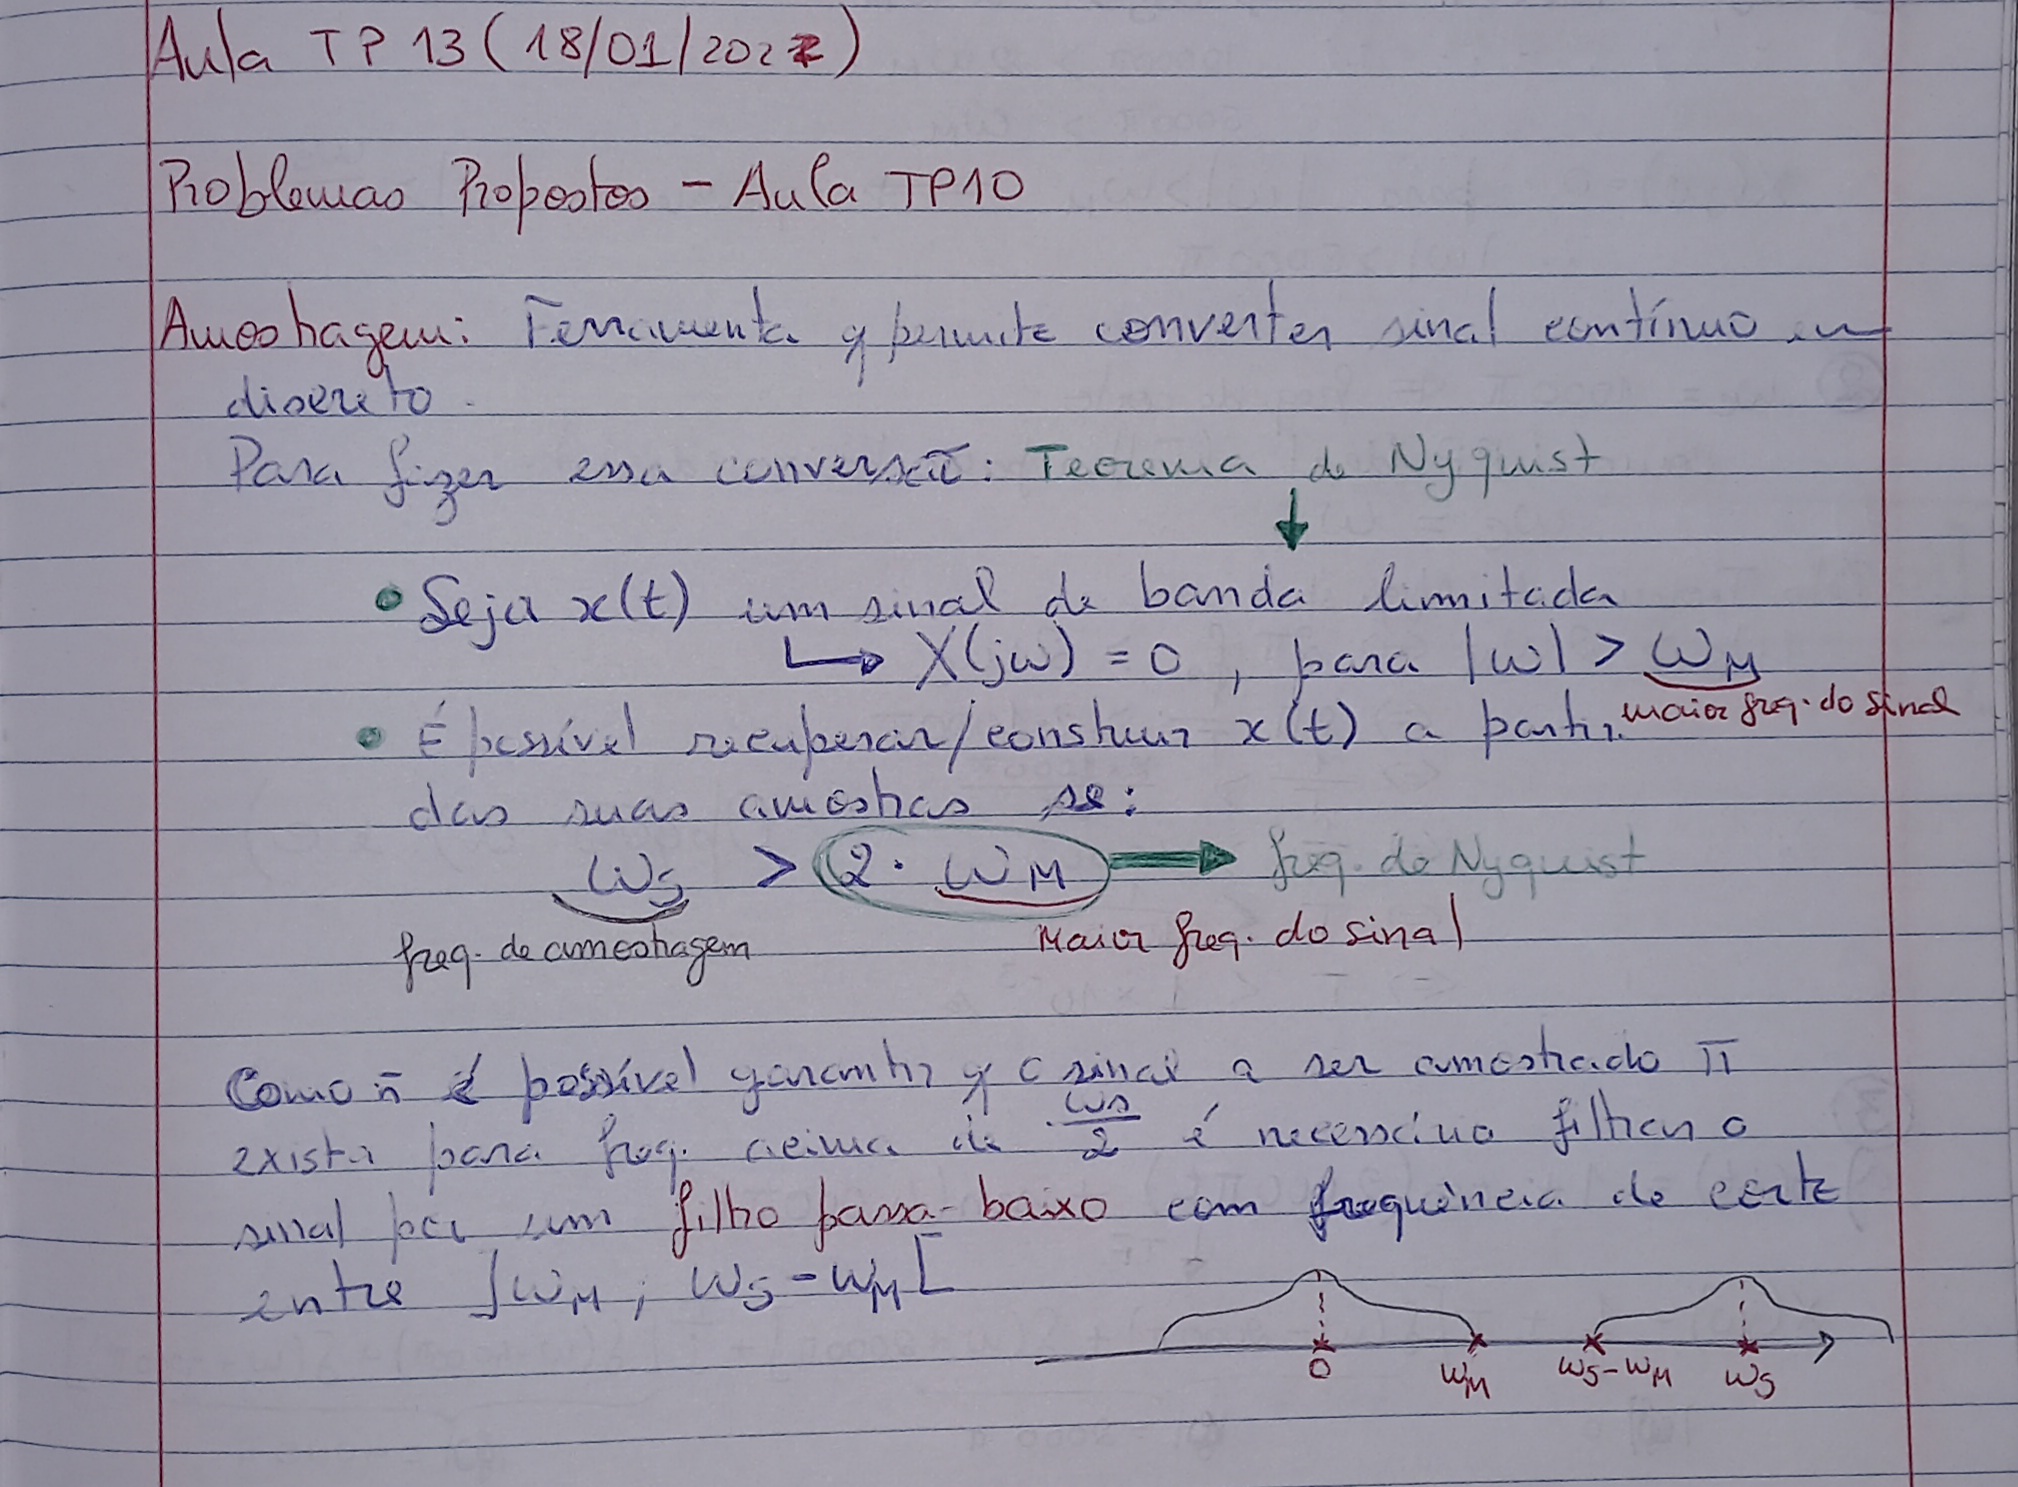 Aula TP 13 (18/01/2022)
Problemas Propostos - Aula TP10
Amostragem: Ferramenta q permite converter sinal contínuo em
discreto.
Para fazer essa conversão: Teorema de Nyquist
↓
• Seja x(t) um sinal de banda limitada
↳ X(jω) = 0, para |ω| > ωM
maior freq. do sinal
• É possível recuperar/construir x(t) a partir
das suas amostras se:
ωS > 2 · ωM → freq. de Nyquist
freq. de amostragem maior freq. do sinal
Como ñ é possível garantir q o sinal a ser amostrado ñ
exista para freq. acima de ωs/2 é necessário filtrar o
sinal por um filtro passa-baixo com frequência de corte
entre ]ωM ; ωS - ωM[
0 ωM ωS-ωM ωS